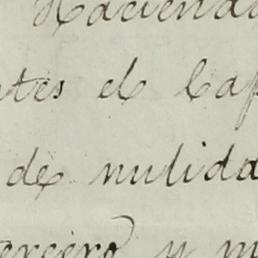 Hacienda
ntes el Cap
de nulida
tercero y m